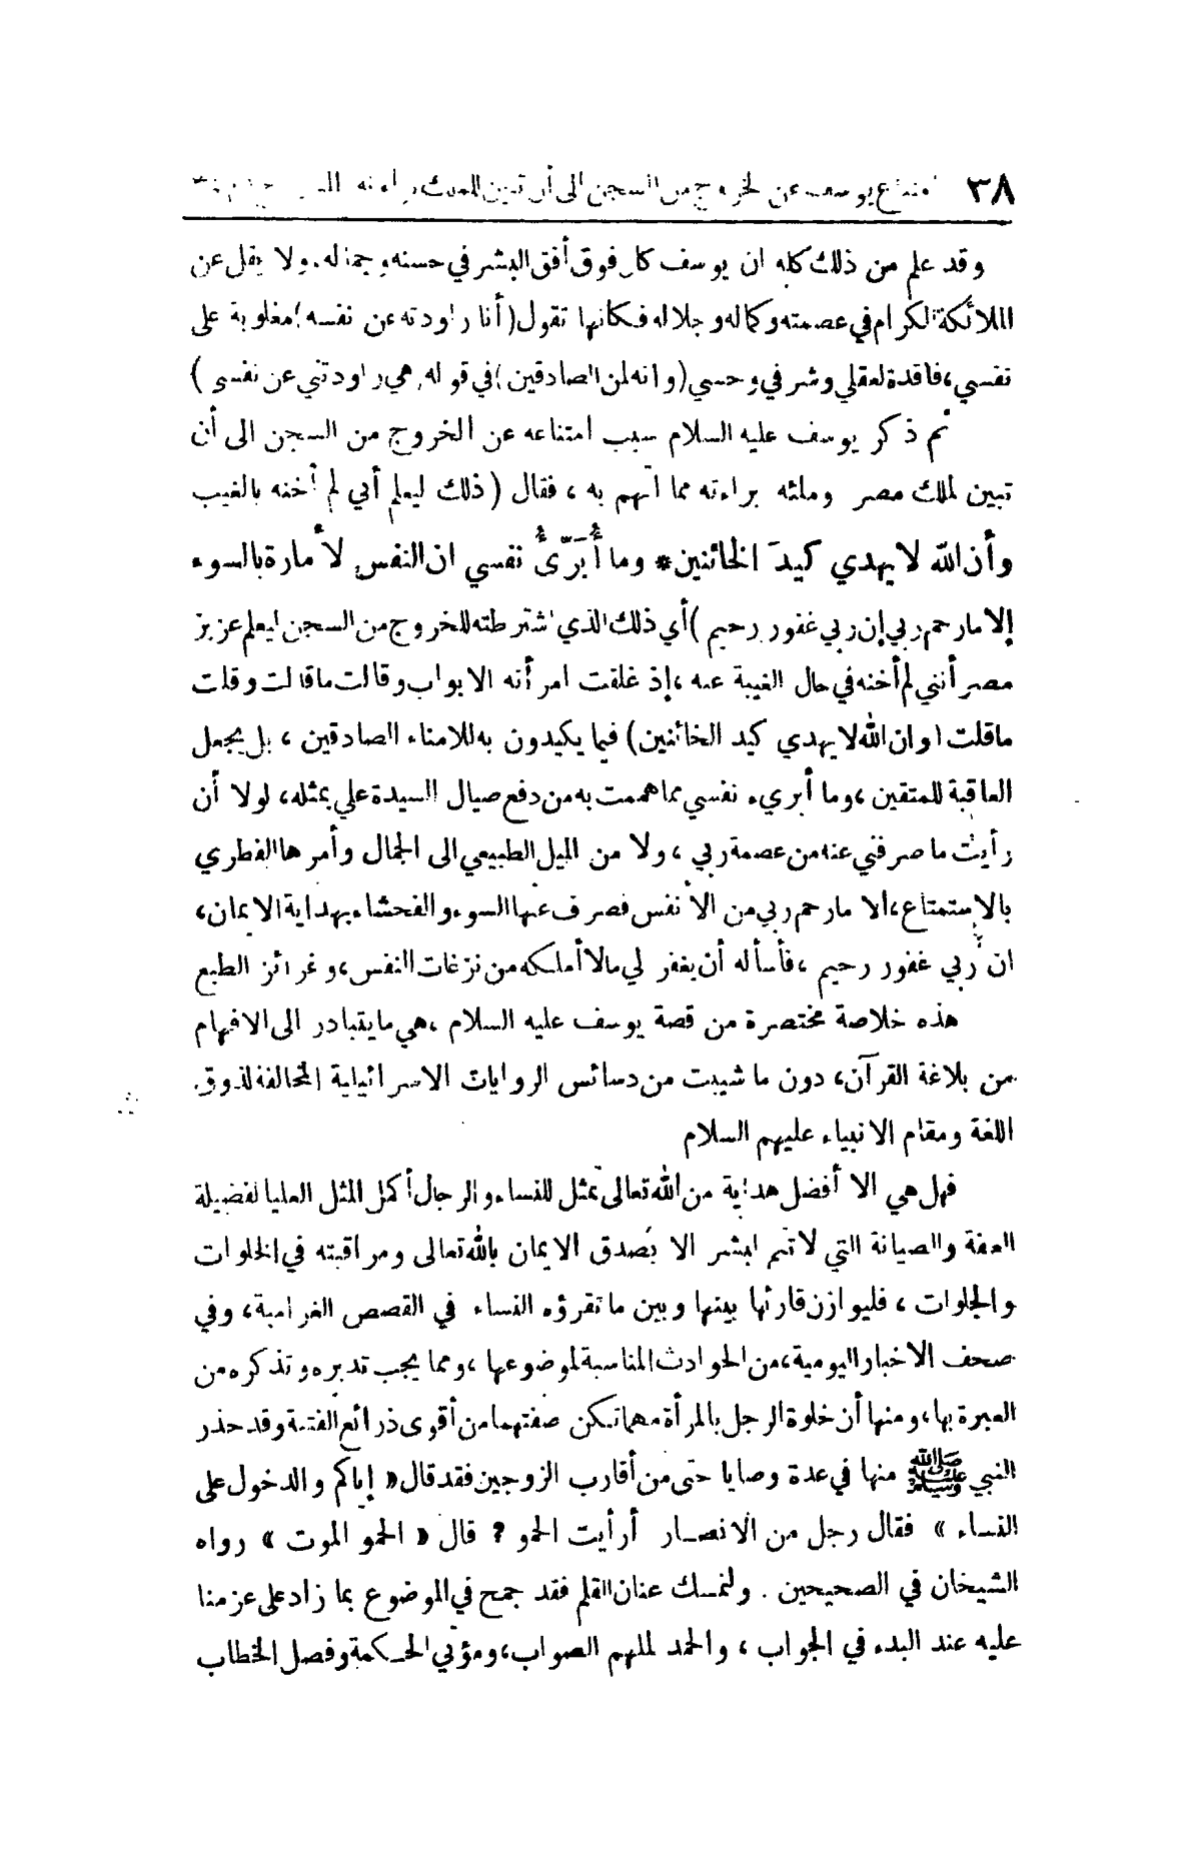 ٣٨ امتناع يوسف عن الخروج من السجن الى أن تبين للملك براءته
وقد علم من ذلك كله ان يوسف كان فوق أفق البشر في حسنه وجماله، ولا يقل عن
الملائكة الكرام في عصمته وكماله وجلاله فكانها تقول (أنا راودته عن نفسه) مغلوبة على
نفسي، فاقدة لعقلي وشرفي وحسي (وانه لمن الصادقين) في قوله هي راودتني عن نفسي)
ثم ذكر يوسف عليه السلام سبب امتناعه عن الخروج من السجن الى أن
تبين لملك مصر وملئه براءته مما اتهم به ، فقال (ذلك ليعلم أني لم أخنه بالغيب
وأن الله لا يهدي كيدَ الخائنين* وما أُبَرِّئُ نفسي ان النفس لأمارة بالسوء
إلا ما رحم ربي إن ربي غفور رحيم) أي ذلك الذي اشترطته للخروج من السجن ليعلم عزيز
مصر أنني لم أخنه في حال الغيبة عنه ، إذ غلقت امرأته الابواب وقالت ما قالت وقلت
ما قلت (وان الله لا يهدي كيد الخائنين) فيما يكيدون به للامناء الصادقين ، بل يجعل
العاقبة للمتقين ، وما أبريء نفسي مما هممت به من دفع صيال السيدة علي بمثله، لولا أن
رأيت ما صرفني عنه من عصمة ربي ، ولا من الميل الطبيعي الى الجمال وأمرها الفطري
بالاستمتاع ، الا ما رحم ربي من الأنفس فصرف عنها السوء والفحشاء بهداية الايمان،
ان ربي غفور رحيم ، فأسأله أن يغفر لي مالا أملكه من نزغات النفس، وغرائز الطبع
هذه خلاصة مختصرة من قصة يوسف عليه السلام ، هي ما يتبادر الى الافهام
من بلاغة القرآن، دون ما شيبت من دسائس الروايات الاسرائيلية المخالفة لذوق
اللغة ومقام الانبياء عليهم السلام
فهل هي الا أفضل هداية من الله تعالى تمثل للنساء والرجال أكمل المثل العليا لفضيلة
العفة والصيانة التي لا تتم لبشر الا بصدق الايمان بالله تعالى ومراقبته في الخلوات
والجلوات ، فليوازن قارئها بينها وبين ما تقرؤه النساء في القصص الغرامية، وفي
صحف الاخبار اليومية، من الحوادث المناسبة لموضوعها ، ومما يجب تدبره وتذكره من
العبرة بها، ومنها أن خلوة الرجل بالمرأة مهما تكن صفتهما من أقوى ذرائع الفتنة وقد حذر
النبي ﷺ منها في عدة وصايا حتى من أقارب الزوجين فقد قال « إياكم والدخول على
النساء » فقال رجل من الانصار أرأيت الحمو ? قال « الحمو الموت » رواه
الشيخان في الصحيحين . ولنمسك عنان القلم فقد جمح في الموضوع بما زاد على عزمنا
عليه عند البدء في الجواب ، والحمد لملهم الصواب، ومؤتي الحكمة وفصل الخطاب